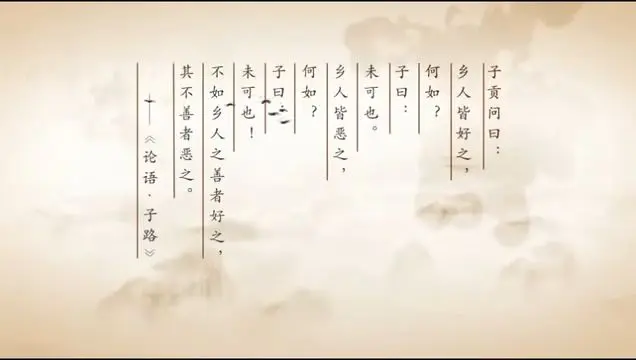 子贡问曰：
乡人皆好之，
何如？
子曰：
未可也。
乡人皆恶之，
何如？
子曰：
未可也！
不如乡人之善者好之，
其不善者恶之。
——《论语·子路》